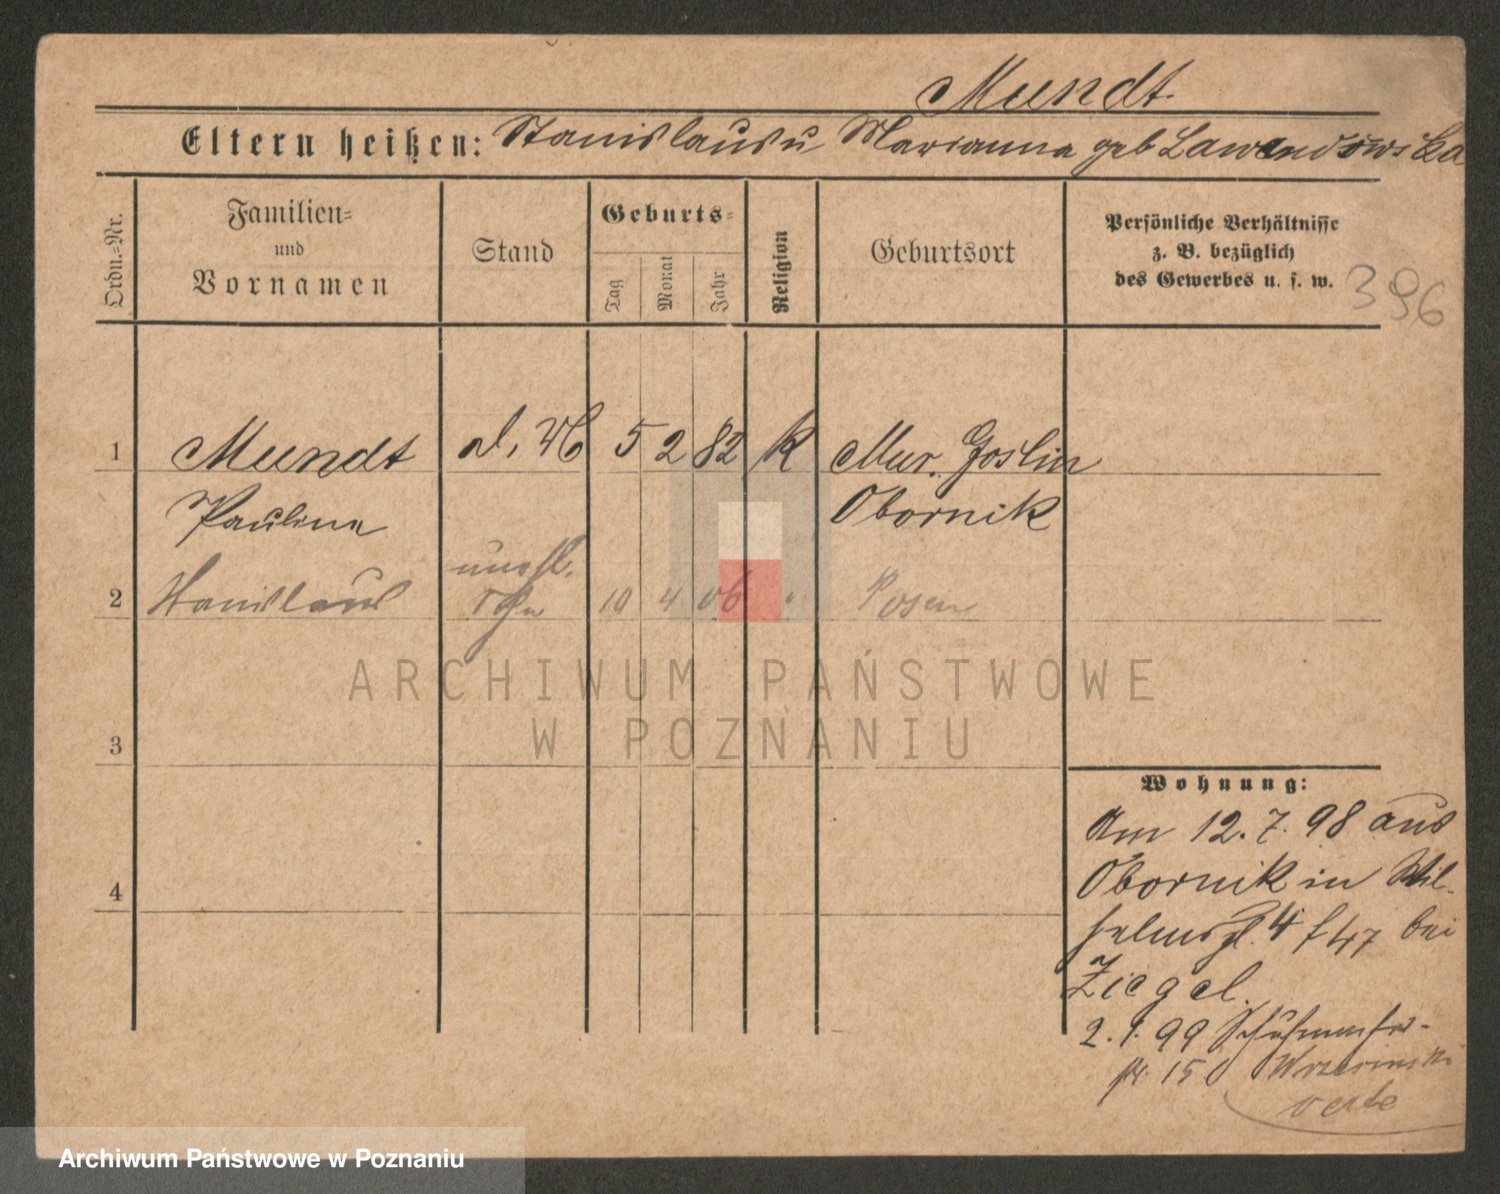 Mundt.
Eltern heißen: Stanislaus u Marianna geb Lawandowska
Ordn.-Nr.
Familien- und Vornamen
Stand
Geburts-
Tag
Monat
Jahr
Religion
Geburtsort
Persönliche Verhältnisse
z. B. bezüglich
des Gewerbes u. s. w.
396
1 Mundt 5 2 82 k Mur. Goslin
Paulina Obornik
unehl.
2 Stanislaus Sohn 10 4 06 " Posen
3
4
Wohnung:
Am 12.7.98 aus
Obornik in Wil-
helmspl. 4 f 47 bei
Ziegel.
2.1.99 Schuhmacher-
str. 15 Wrzesinski
ARCHIWUM PAŃSTWOWE
W POZNANIU
Archiwum Państwowe w Poznaniu